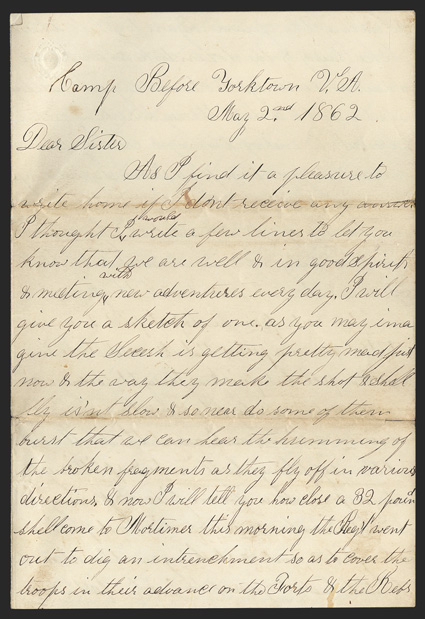 Camp Before Yorktown V.A.
May 2nd 1862.
Dear Sister
As I find it a pleasure to
write home if I dont receive any answer
I thought I would write a few lines to let you
know that we are well & in good Spirits
& meeting with new adventures every day. I will
give you a sketch of one. as you may ima
gine the Secesh is getting pretty mad just
now & the way they make the shot & shell
fly is'nt slow & so near do some of them
burst that we can hear the humming of
the broken fragments as they fly off in various
directions, & now I will tell you how close a 32 poun
shell come to Mortimer this morning the Regt went
out to dig an intrenchment so as to cover the
troops in their advance on the Forts & the Rebs